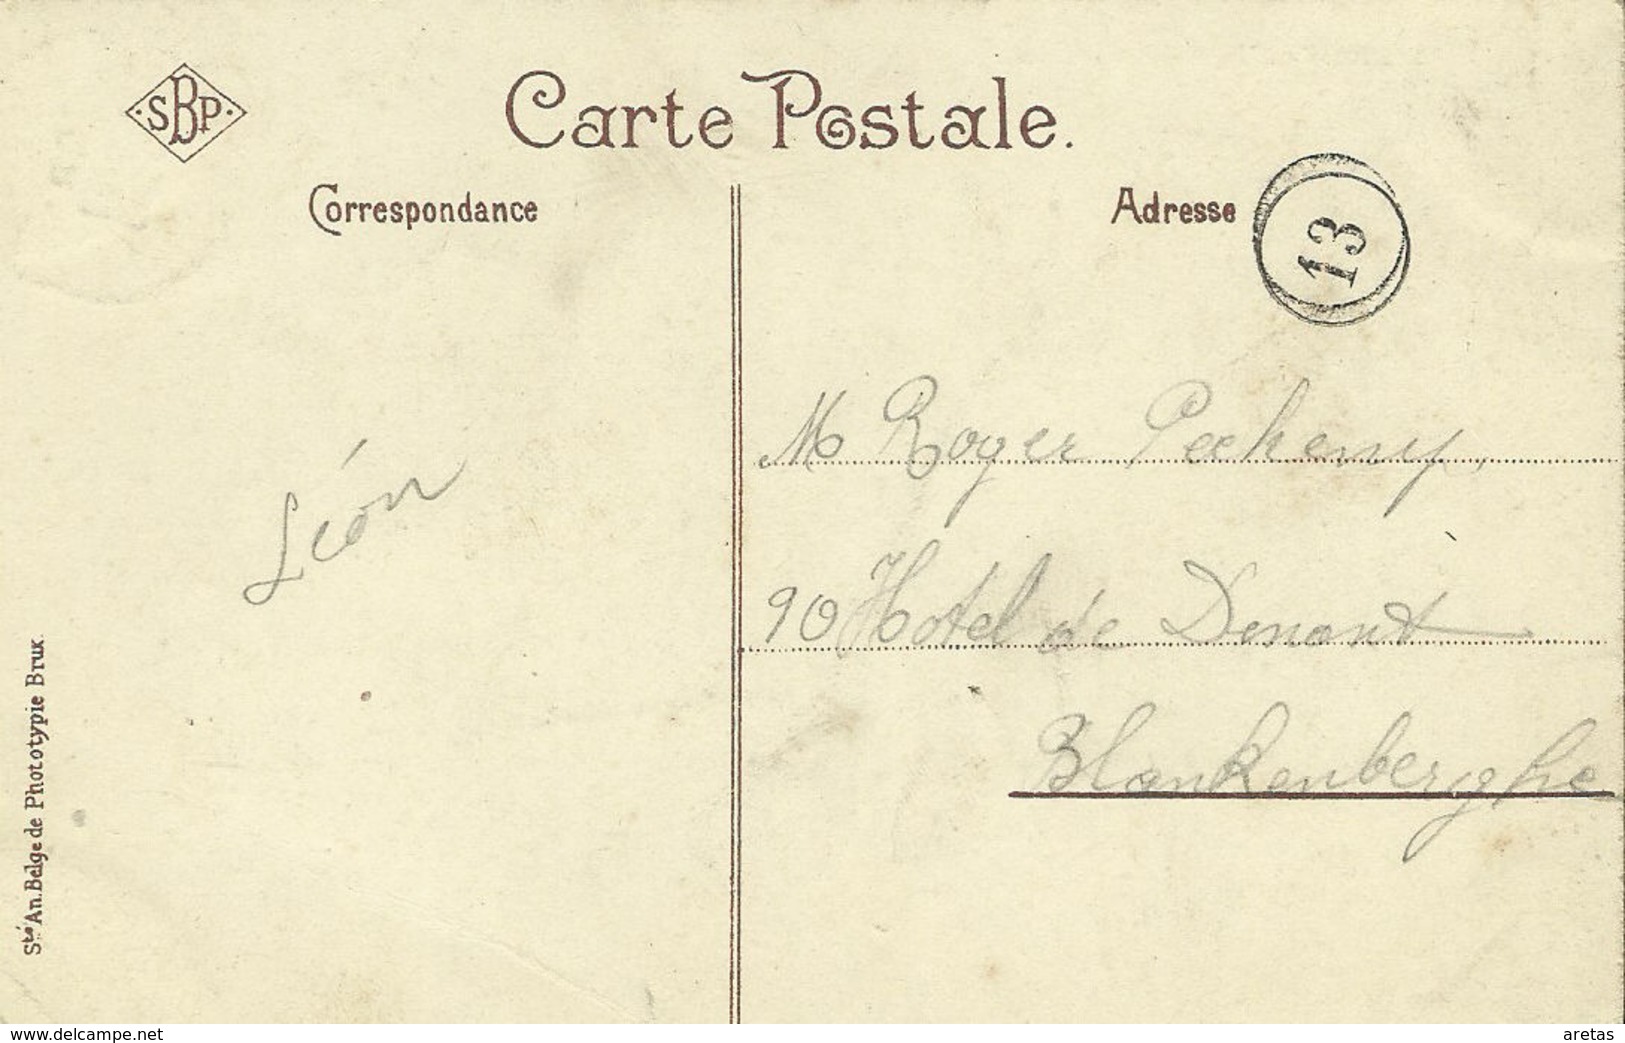 SBP
Carte Postale.
Correspondance
Adresse
13
Léon
M Roger
90 Hotel de
Blankenberghe
Sté An. Belge de Phototypie Brux.
www.delcampe.net
aretas